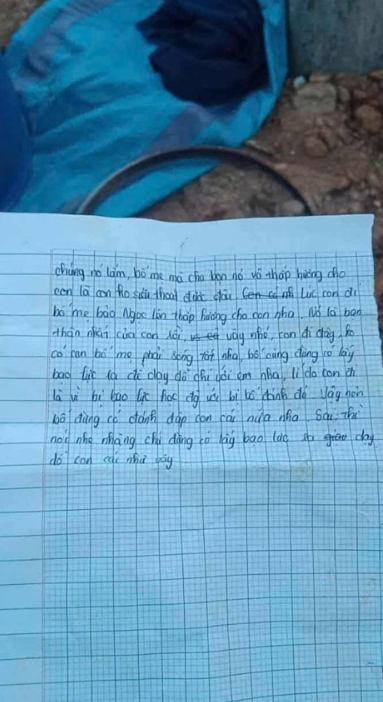 chúng nó lắm, bố mẹ mà cho bọn nó vô thắp hương cho
con là con ko siêu thoát được đâu. Lúc con đi
bố mẹ bảo Ngọc lên thắp hương cho con nha, nó là bạn
thân nhất của con rồi, vậy nhé, con đi đây, ko
có con bố mẹ phải sống tốt nha, bố cũng đừng có lấy
bạo lực ra để dạy dỗ chị với em nha, lí do con đi
là vì bị bạo lực học đg với bị bố đánh đó. Vậy nên
bố đừng có đánh đập con cái nữa nha. Sai thì
nói nhẹ nhàng chứ đừng có lấy bạo lực ra dạy
dỗ con cái như vậy